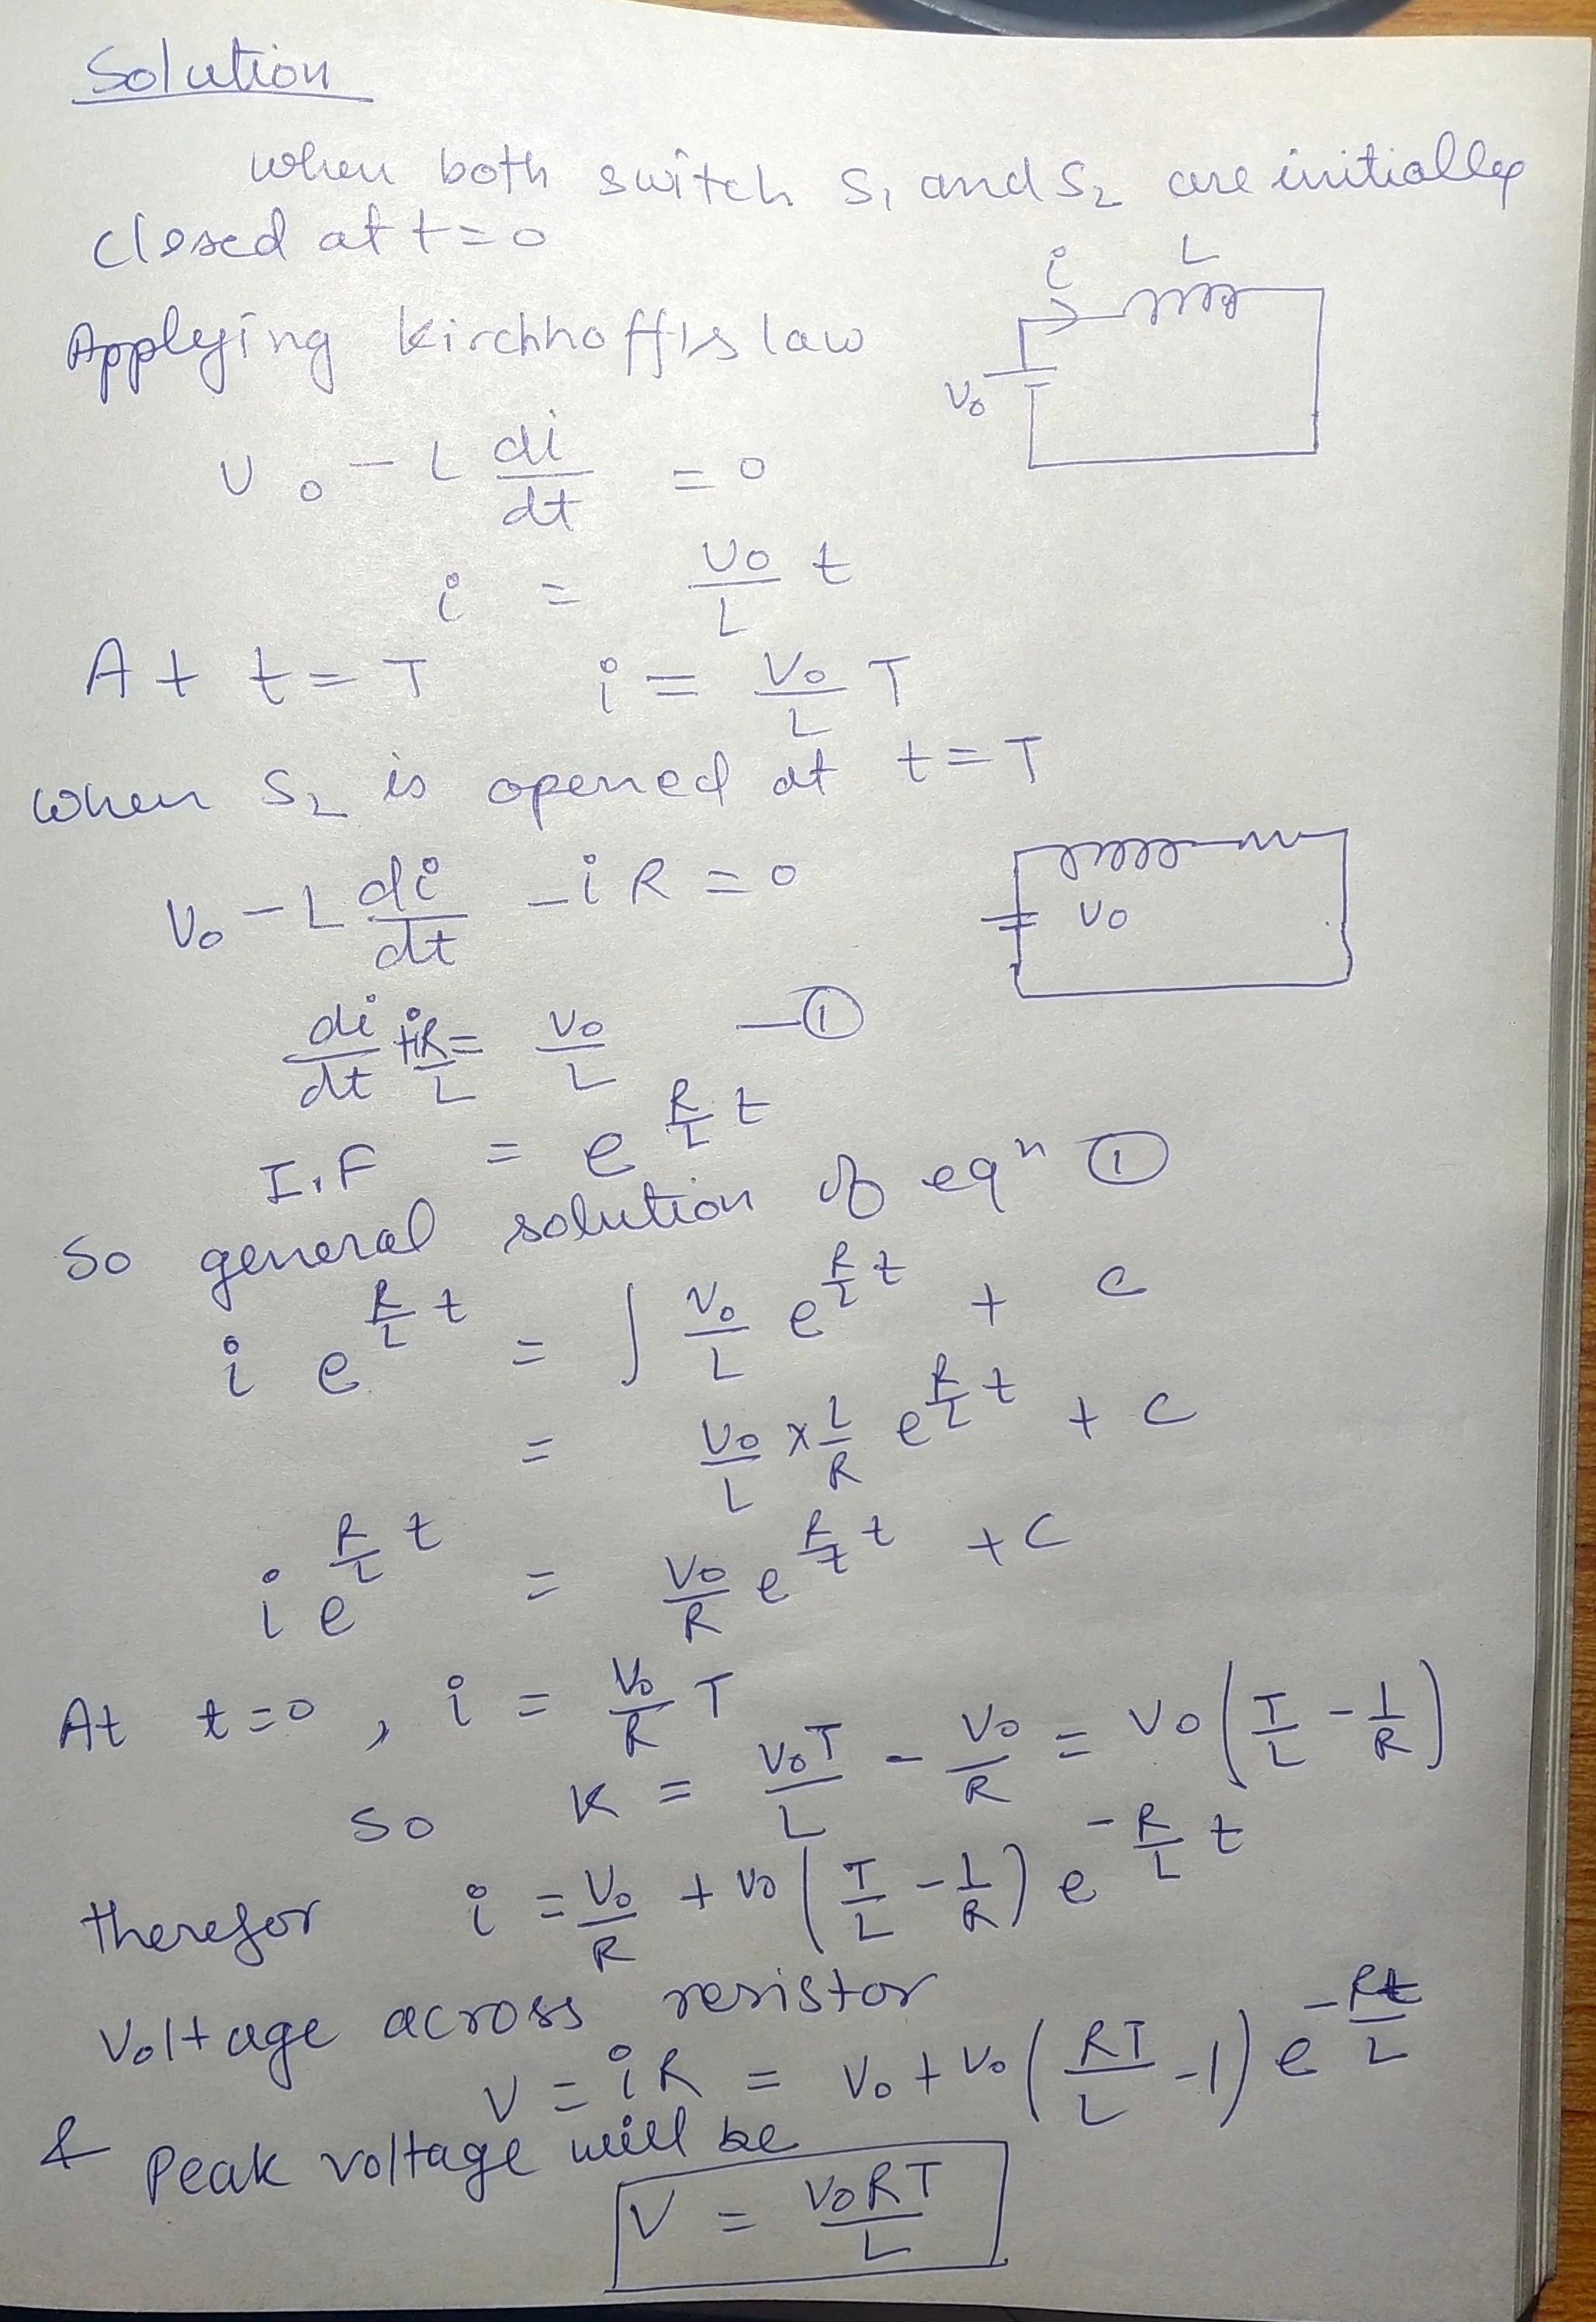 Solution
when both switch S₁ and S₂ are initially
closed at t=0
i L
Applying Kirchhoff's law
V₀
V₀ - L di/dt = 0
i = V₀/L t
At t=T i = V₀/L T
when S₂ is opened at t=T
V₀ - L di/dt - iR = 0
V₀
di/dt + iR/L = V₀/L —①
I.F = e^(R/L t)
So general solution of eqⁿ ①
i e^(R/L t) = ∫ V₀/L e^(R/L t) + C
= V₀/L × L/R e^(R/L t) + C
i e^(R/L t) = V₀/R e^(R/L t) + C
At t=0, i = V₀/R T
So K = V₀T/L - V₀/R = V₀(T/L - 1/R)
therefor i = V₀/R + V₀(T/L - 1/R) e^(-R/L t)
Voltage across resistor
V = iR = V₀ + V₀(RT/L - 1) e^(-Rt/L)
& Peak voltage will be
V = V₀RT/L